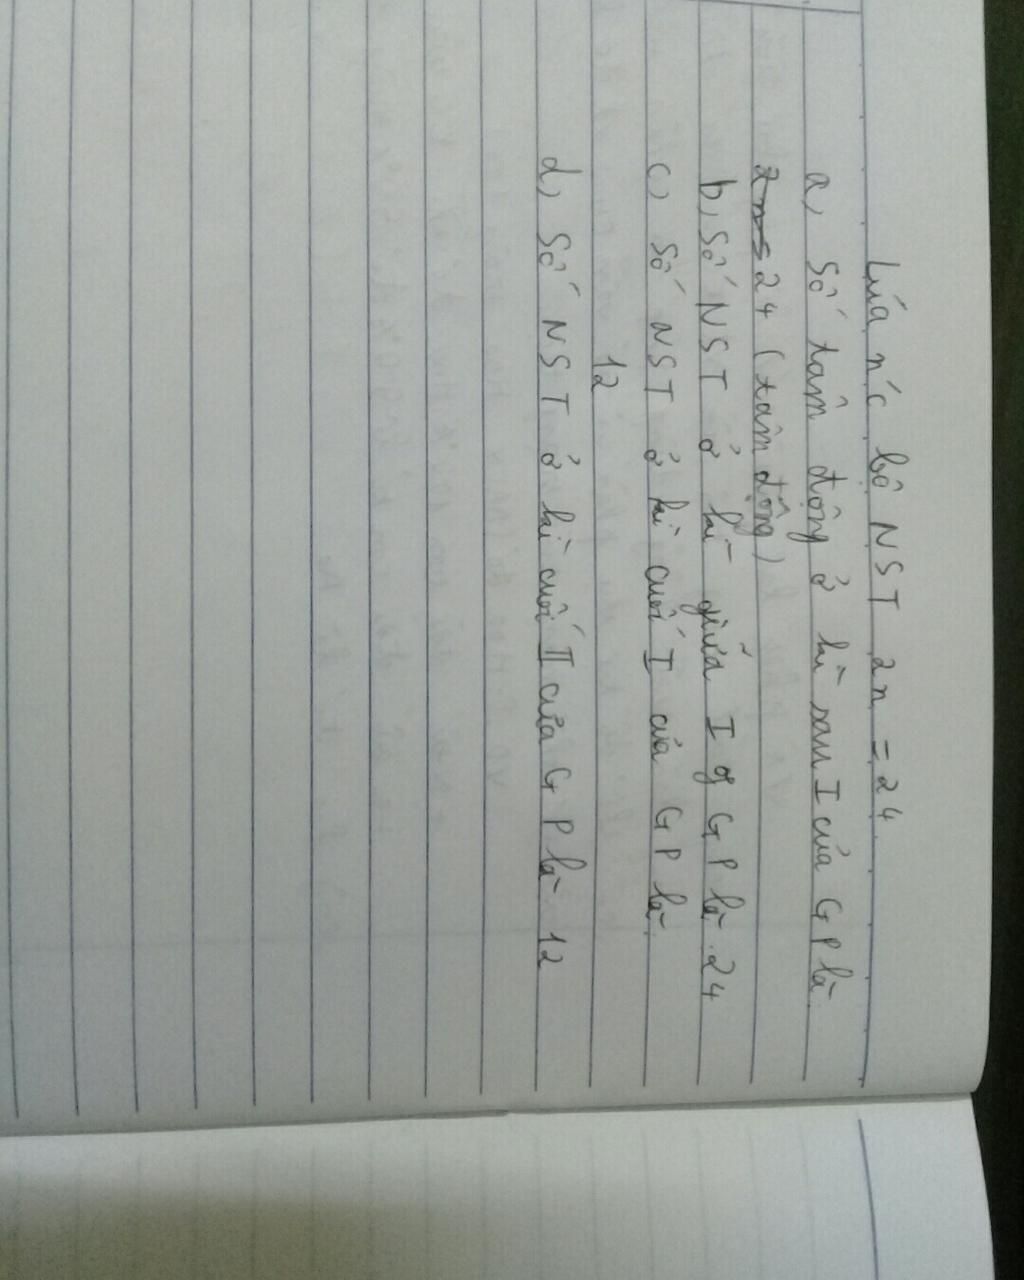 Lúa nước bộ NST 2n = 24
a, Số tâm động ở kì sau I của GP là
24 (tâm động)
b, Số NST ở kì giữa I GP là 24
c, Số NST ở kì cuối I của GP là
12
d, Số NST ở kì cuối II của GP là 12